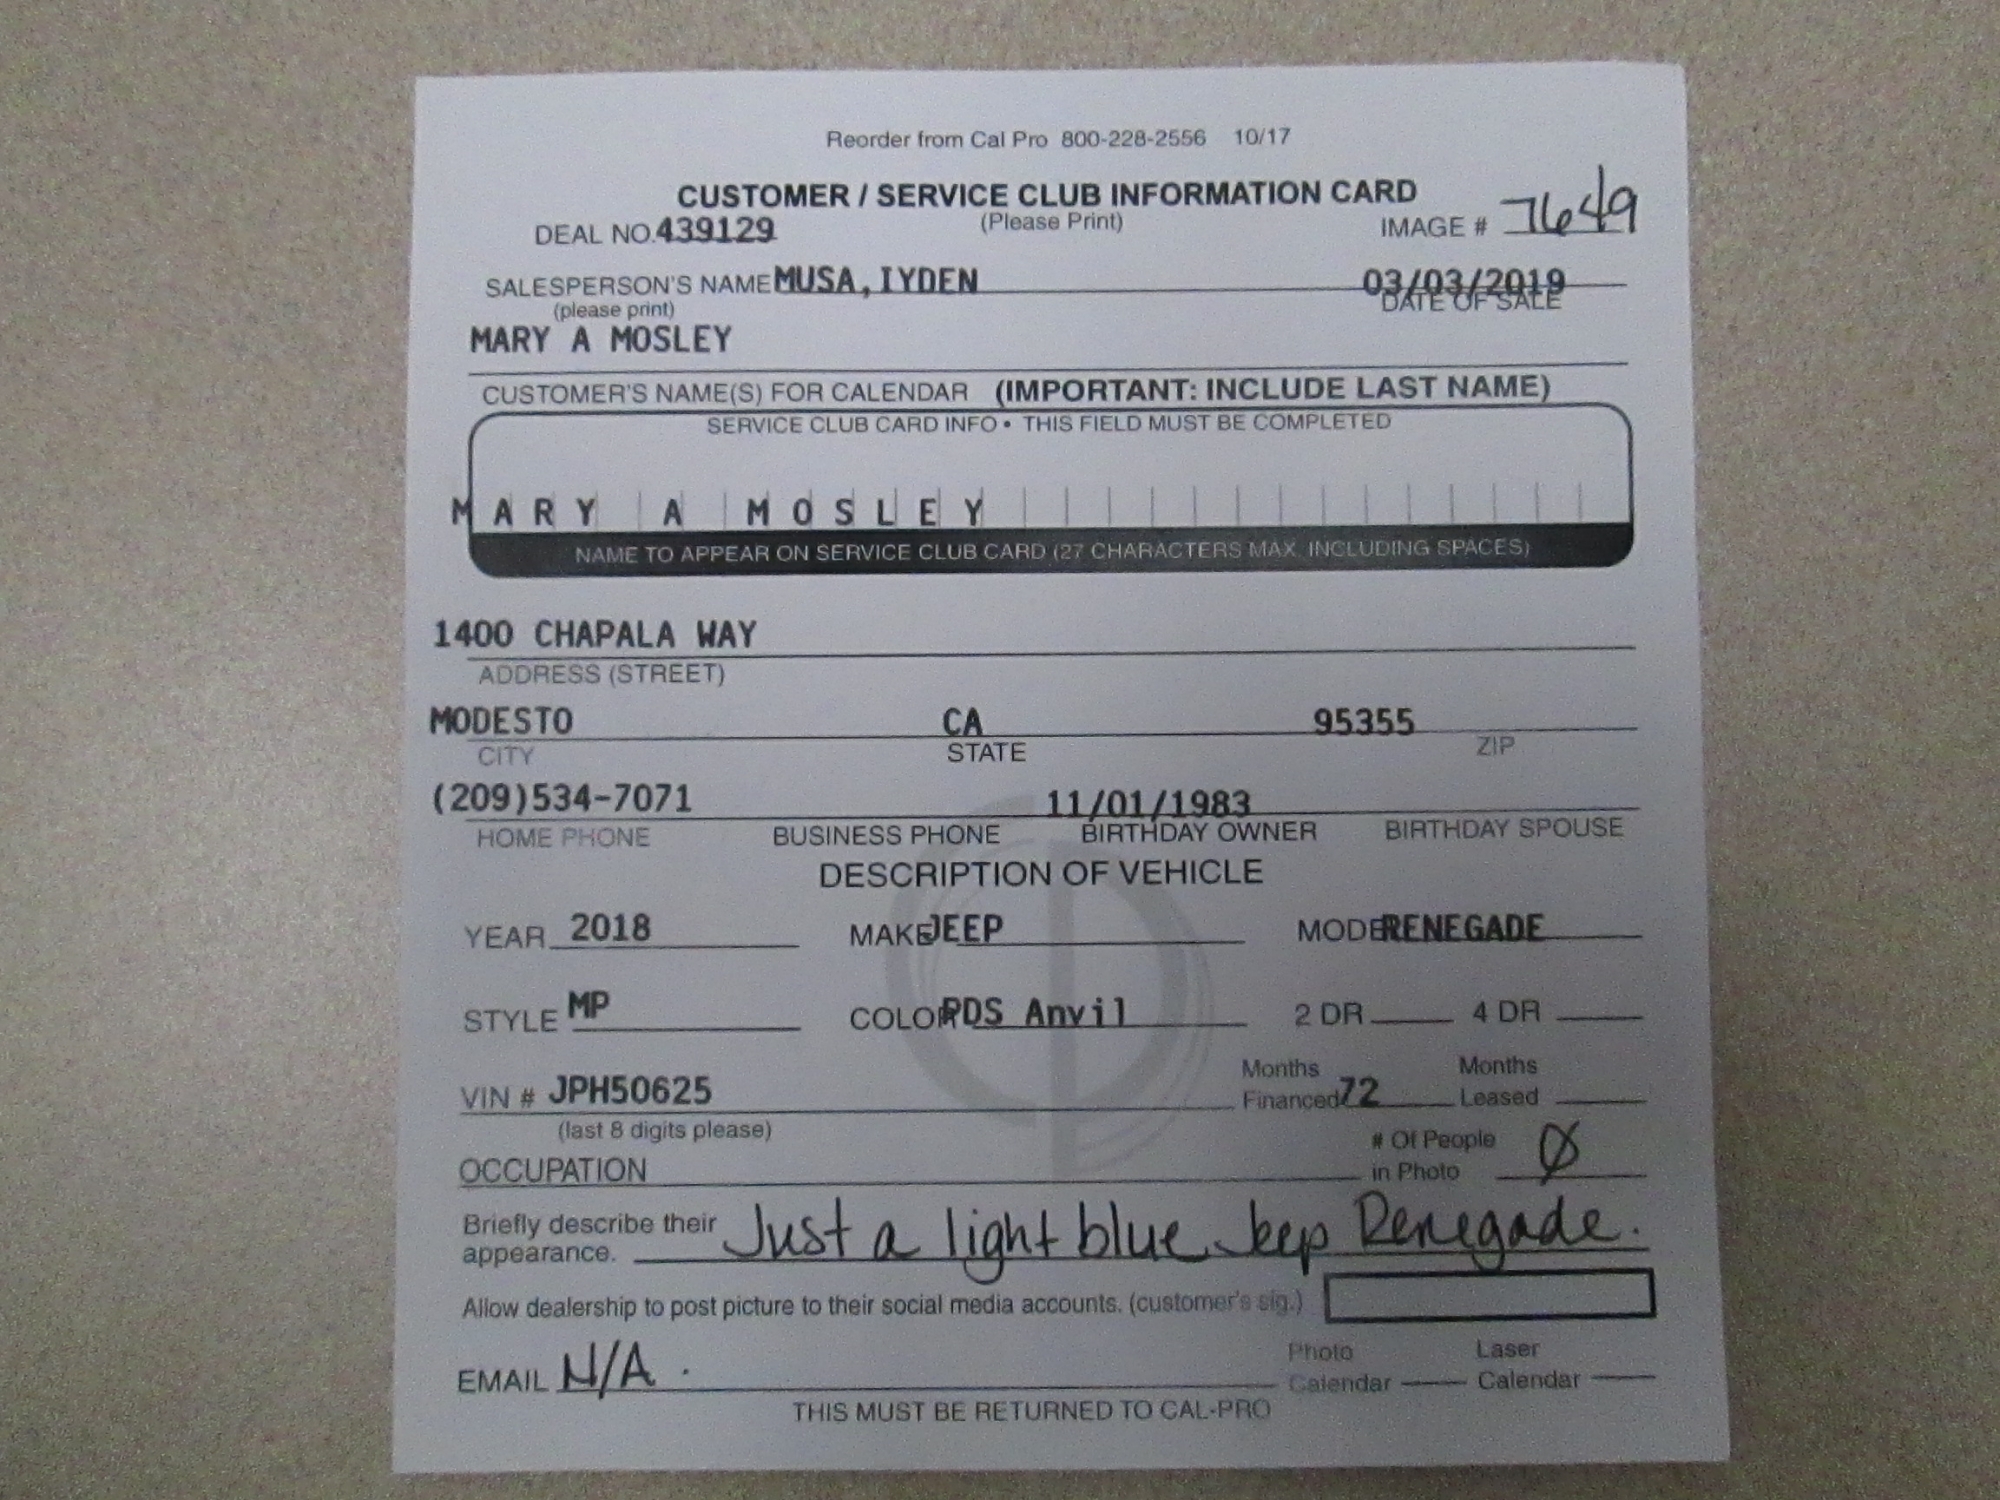 Reorder from Cal Pro 800-228-2556 10/17
CUSTOMER / SERVICE CLUB INFORMATION CARD
DEAL NO. 439129 (Please Print) IMAGE # 7649
SALESPERSON'S NAME MUSA, IYDEN 03/03/2019
(please print) DATE OF SALE
MARY A MOSLEY
CUSTOMER'S NAME(S) FOR CALENDAR (IMPORTANT: INCLUDE LAST NAME)
SERVICE CLUB CARD INFO • THIS FIELD MUST BE COMPLETED
MARY A MOSLEY
NAME TO APPEAR ON SERVICE CLUB CARD (27 CHARACTERS MAX. INCLUDING SPACES)
1400 CHAPALA WAY
ADDRESS (STREET)
MODESTO CA 95355
CITY STATE ZIP
(209)534-7071 11/01/1983
HOME PHONE BUSINESS PHONE BIRTHDAY OWNER BIRTHDAY SPOUSE
DESCRIPTION OF VEHICLE
YEAR 2018 MAKE JEEP MODEL RENEGADE
STYLE MP COLOR PDS Anvil 2 DR 4 DR
Months Months
VIN # JPH50625 Financed 72 Leased
(last 8 digits please)
# Of People
OCCUPATION in Photo Ø
Briefly describe their Just a light blue Jeep Renegade.
appearance.
Allow dealership to post picture to their social media accounts. (customer's sig.)
Photo Laser
EMAIL N/A. Calendar Calendar
THIS MUST BE RETURNED TO CAL-PRO